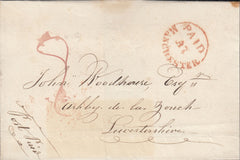 PAID
AT
MANCHESTER
John Woodhouse Esqr
Ashby de la Zouch
Leicestershire
Post Paid